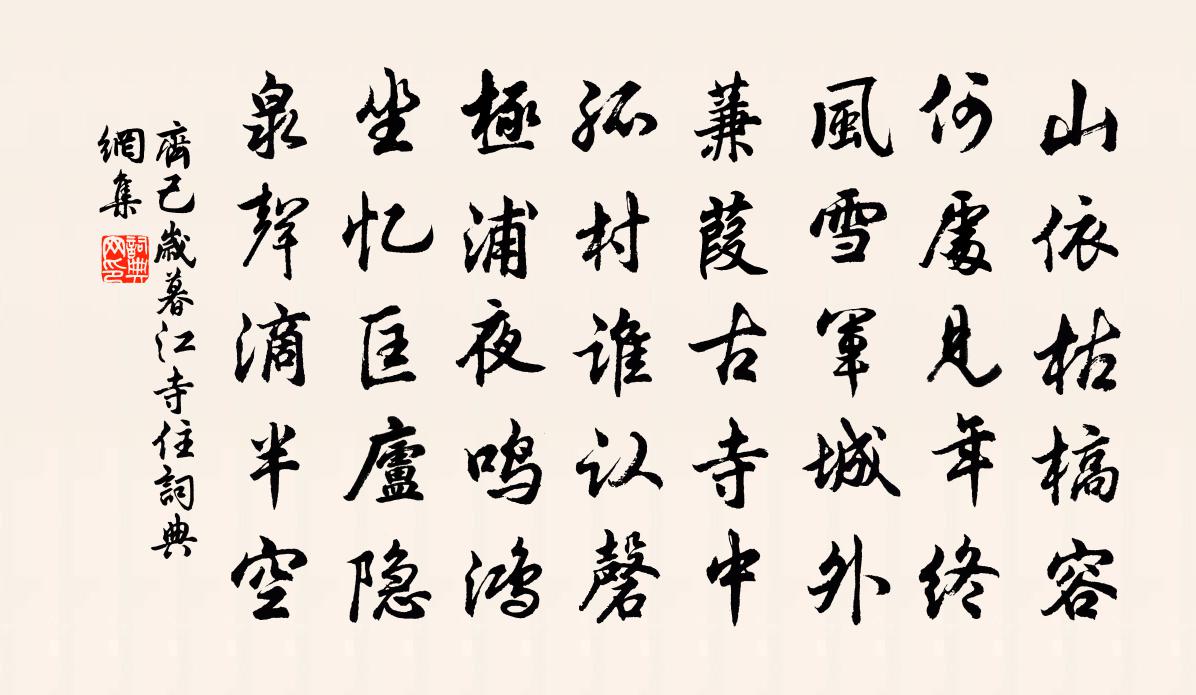 山依枯槁容
何處見年終
風雪軍城外
蒹葭古寺中
孤村谁认磬
極浦夜鸣鸿
坐忆匡廬隐
泉聲滴半空
齊己歲暮江寺住詞典
網集
詞典
网印